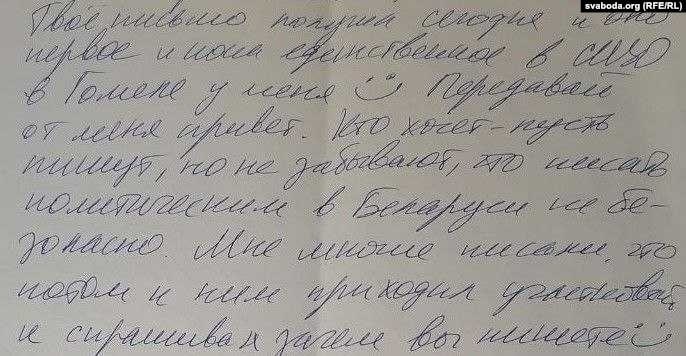 svaboda.org (RFE/RL)
Твоё письмо получил сегодня и оно
первое и пока единственное в СИЗО
в Гомеле у меня :) Передавай
от меня привет. Кто хочет - пусть
пишут, но не забывают, что писать
политическим в Беларуси не бе-
зопасно. Мне многие писали, что
потом к ним приходил участковый
и спрашивал зачем вы пишете :)